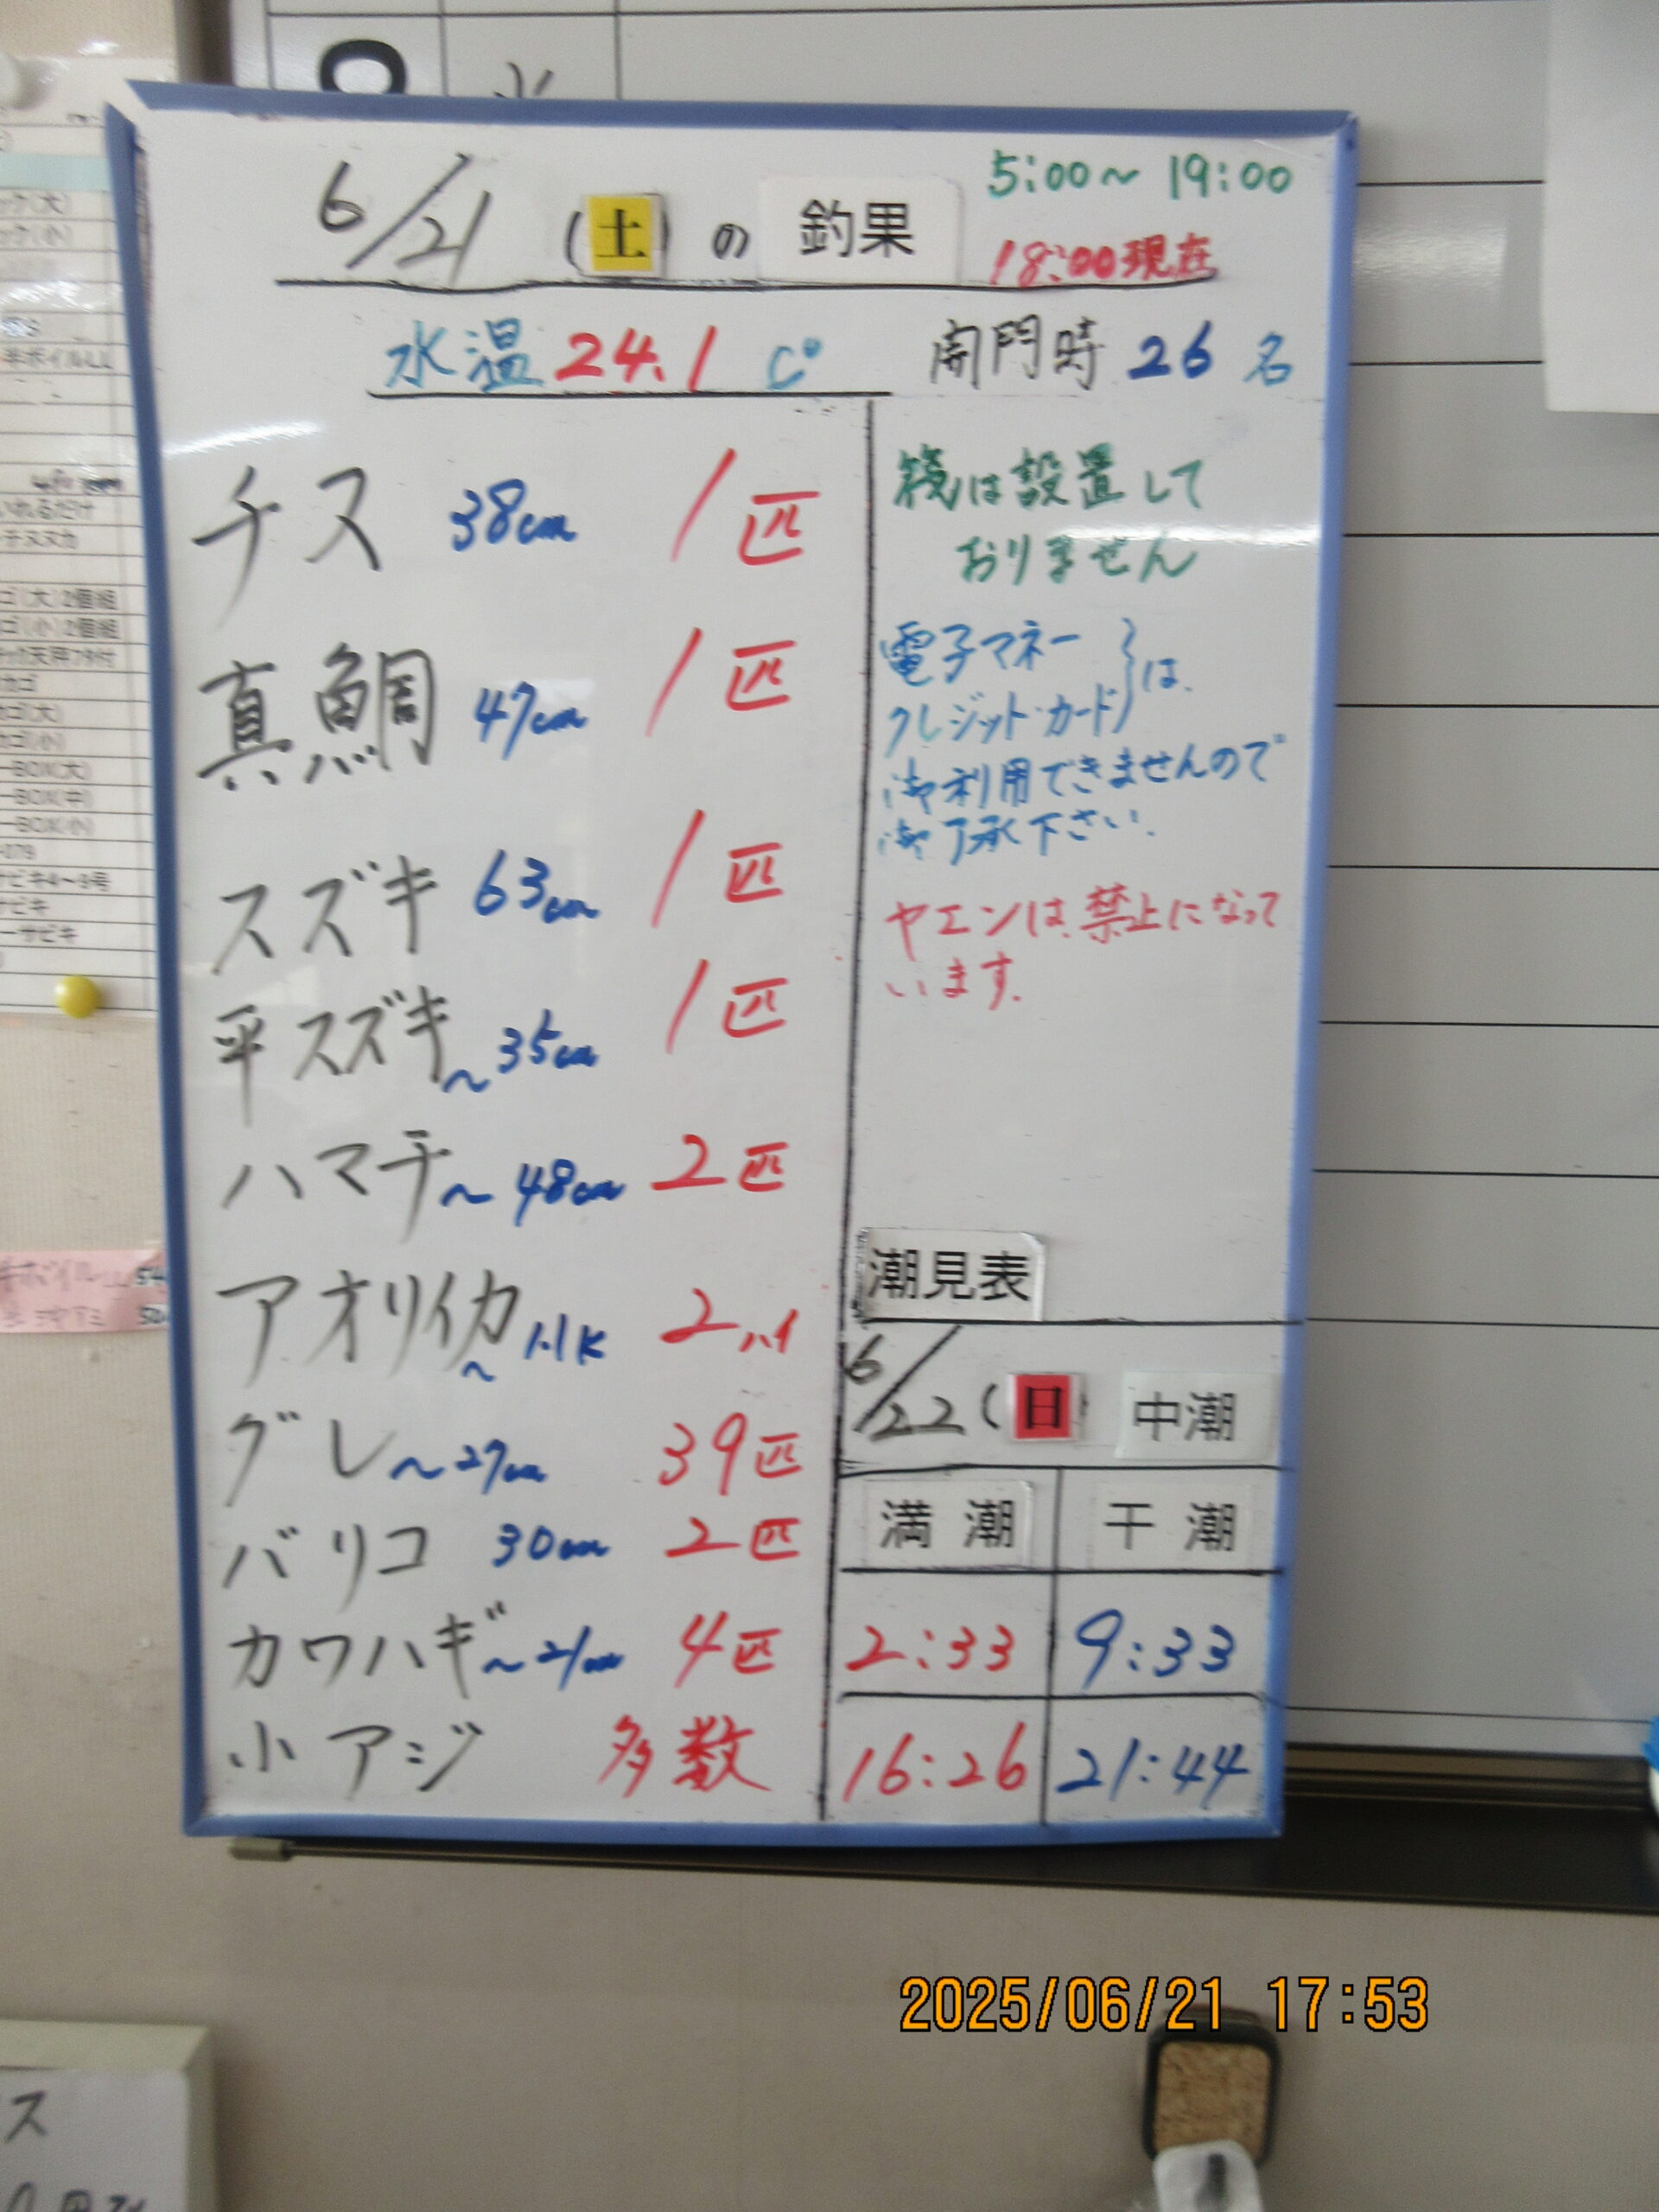 6/21 (土) の 釣果
5:00~19:00
18:00現在
水温 24.1 C°
開門時 26名
チヌ 38cm 1匹
真鯛 47cm 1匹
スズキ 63cm 1匹
平スズキ ~35cm 1匹
ハマチ ~48cm 2匹
アオリイカ ~1.1K 2ハイ
グレ ~27cm 39匹
バリコ 30cm 2匹
カワハギ ~21cm 4匹
小アジ 多数
筏は設置して
おりません
電子マネー
クレジット・カード}は、
御利用できませんので
御了承下さい.
ヤエンは、禁止になって
います.
潮見表
6/22 (日) 中潮
満潮 干潮
2:33 9:33
16:26 21:44
2025/06/21 17:53
いれるだけ
ゴ(大)2個組
ゴ(小)2個組
カゴ
ゴ(大)
ゴ(小)
ーBOX(大)
ーBOX(中)
ーBOX(小)
サビキ
ーサビキ
ス